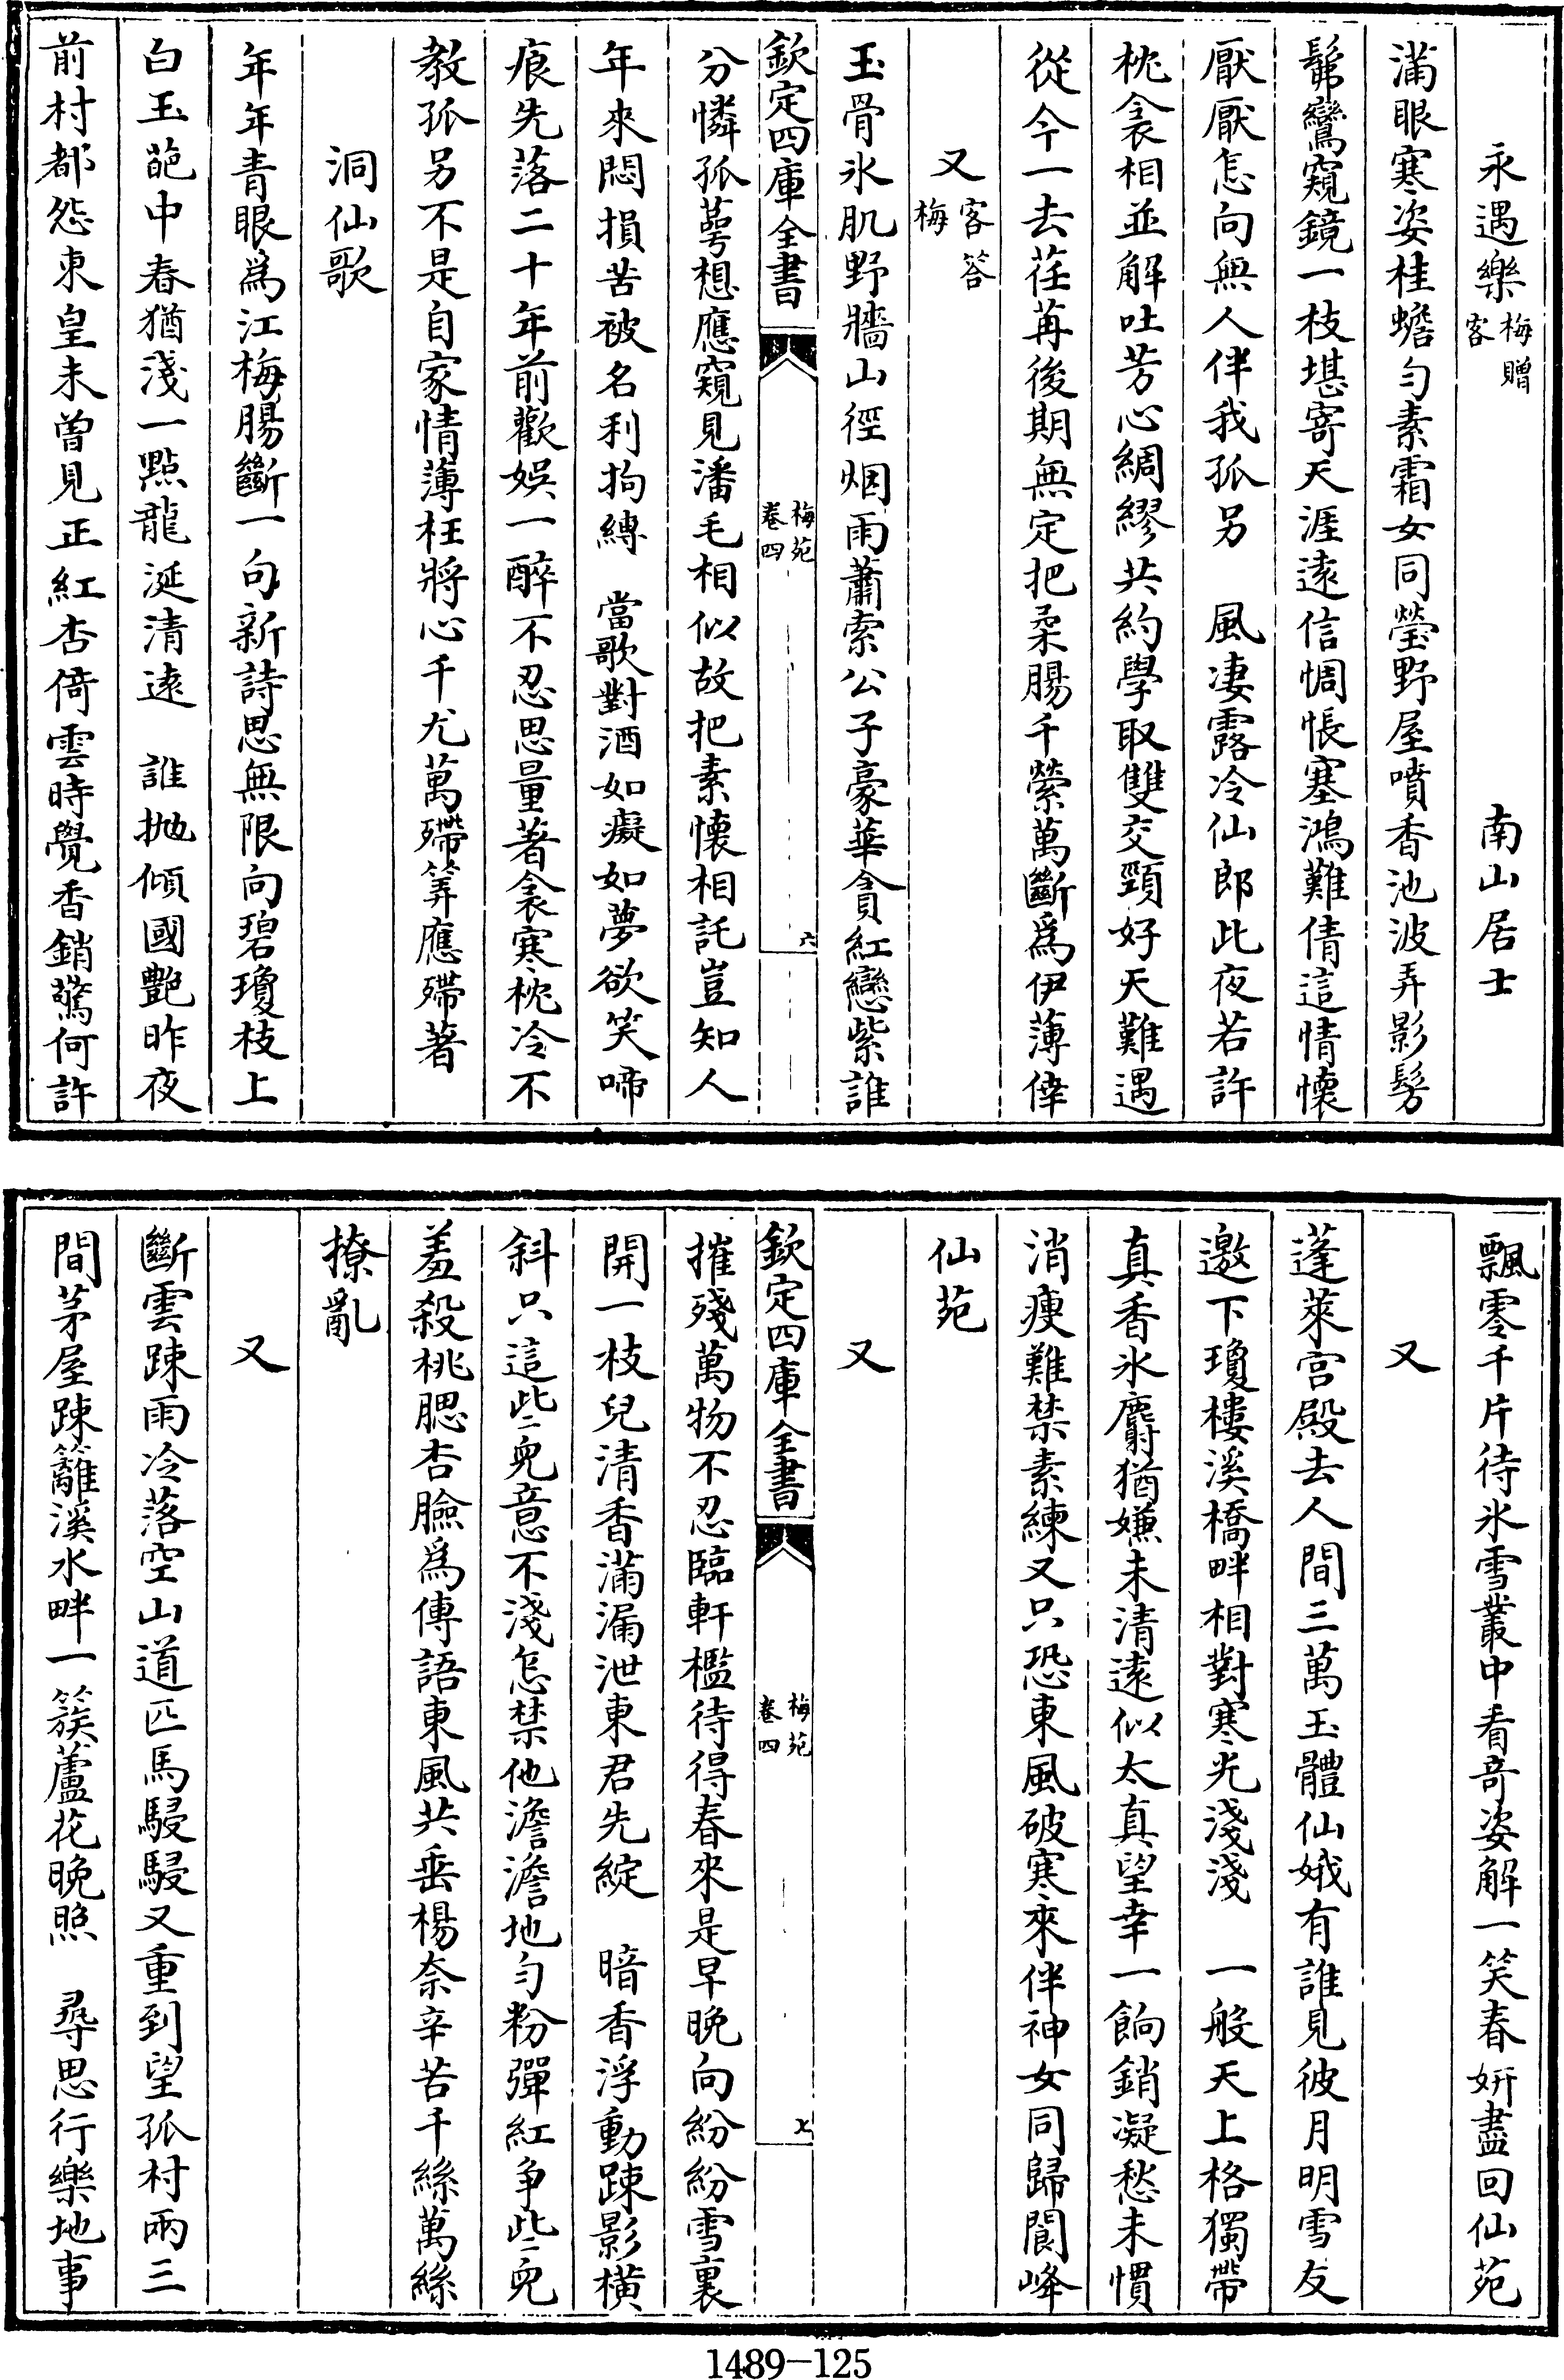 永遇樂梅贈客　南山居士
滿眼寒姿桂蟾勻素霜女同瑩野屋噴香池波弄影髣
髴鸞窺鏡一枝堪寄天涯遠信惆悵塞鴻難倩這情懷
厭厭怎向無人伴我孤另　風凄露冷仙郎此夜若許
枕衾相並解吐芳心綢繆共約學取雙交頸好天難遇
從今一去荏苒後期無定把柔腸千縈萬斷爲伊薄倖
又客答梅
玉骨氷肌野牆山徑烟雨蕭索公子豪華貪紅戀紫誰
欽定四庫全書　梅苑卷四　六
分憐孤萼想應窺見潘毛相似故把素懷相託豈知人
年來悶損苦被名利拘縛　當歌對酒如癡如夢欲笑啼
痕先落二十年前歡娛一醉不忍思量著衾寒枕冷不
教孤另不是自家情薄枉將心千尤萬殢筭應殢著
洞仙歌
年年青眼爲江梅腸斷一句新詩思無限向碧瓊枝上
白玉葩中春猶淺一點龍涎清遠　誰抛傾國艷昨夜
前村都恐東皇未曽見正紅杏倚雲時覺香銷驚何許
飄零千片待氷雪叢中看奇姿解一笑春妍盡回仙苑
又
蓬萊宫殿去人間三萬玉體仙娥有誰見彼月明雪友
邀下瓊樓溪橋畔相對寒光淺淺　一般天上格獨帶
真香氷麝猶嫌未清遠似太真望幸一餉銷凝愁未慣
消瘦難禁素練又只恐東風破寒來伴神女同歸閬峰
仙苑
又
欽定四庫全書　梅苑卷四　七
摧殘萬物不忍臨軒檻待得春來是早晚向紛紛雪裏
開一枝兒清香滿漏泄東君先綻　暗香浮動踈影橫
斜只這些兒意不淺怎禁他澹澹地勻粉彈紅争些兒
羞殺桃腮杏臉爲傳語東風共垂楊奈辛苦千絲萬絲
撩亂
又
斷雲踈雨冷落空山道匹馬駸駸又重到望孤村兩三
間茅屋踈籬溪水畔一簇蘆花晚照　尋思行樂地事
1489—125